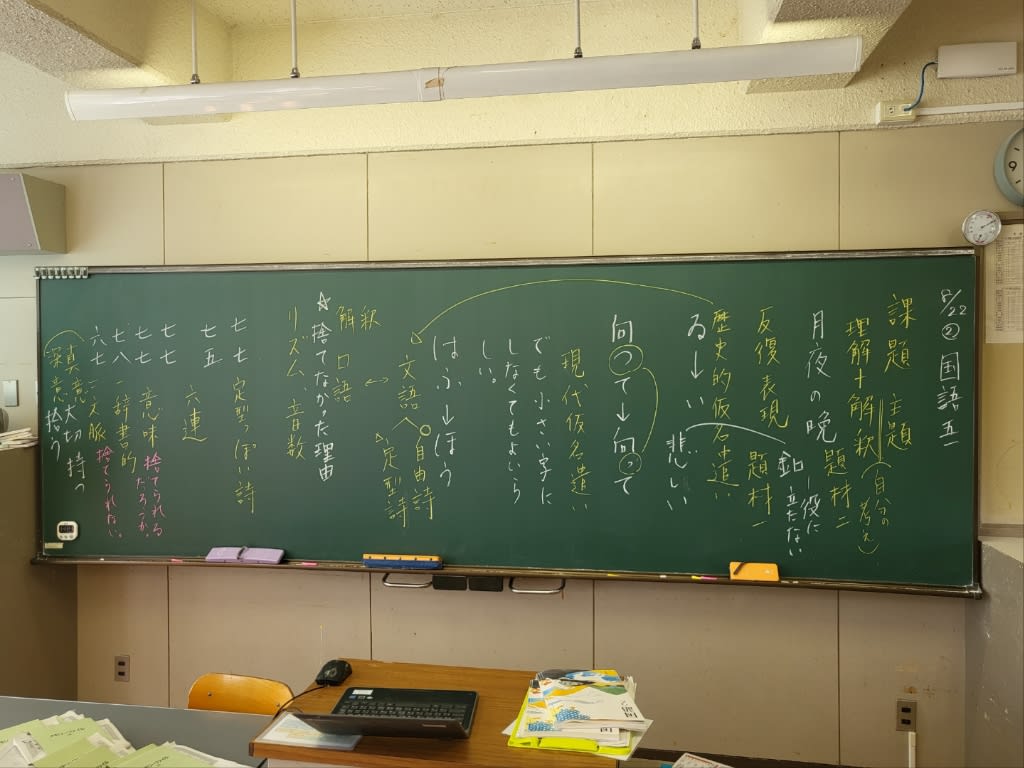 8/22 ② 国語五一
課題 主題
理解+解釈(自分の考え)
月夜の晩 題材二
釦－役に立たない
反復表現 題材一
歴史的仮名遣い
る→い 悲しい
向つて→向って
現代仮名遣い
でも小さい字に
しなくてもよいら
しい。
はふ→ほう
文語へ○自由詩
△定型詩
解釈 口語 ↔
☆捨てなかった理由
リズム、音数
七七 定型っぽい詩
七五 六連
七七 意味 捨てられる
七七 だろうか。
七八 －辞書的
六七 －文脈 捨てられない。
真意 大切 持つ
深意 拾う